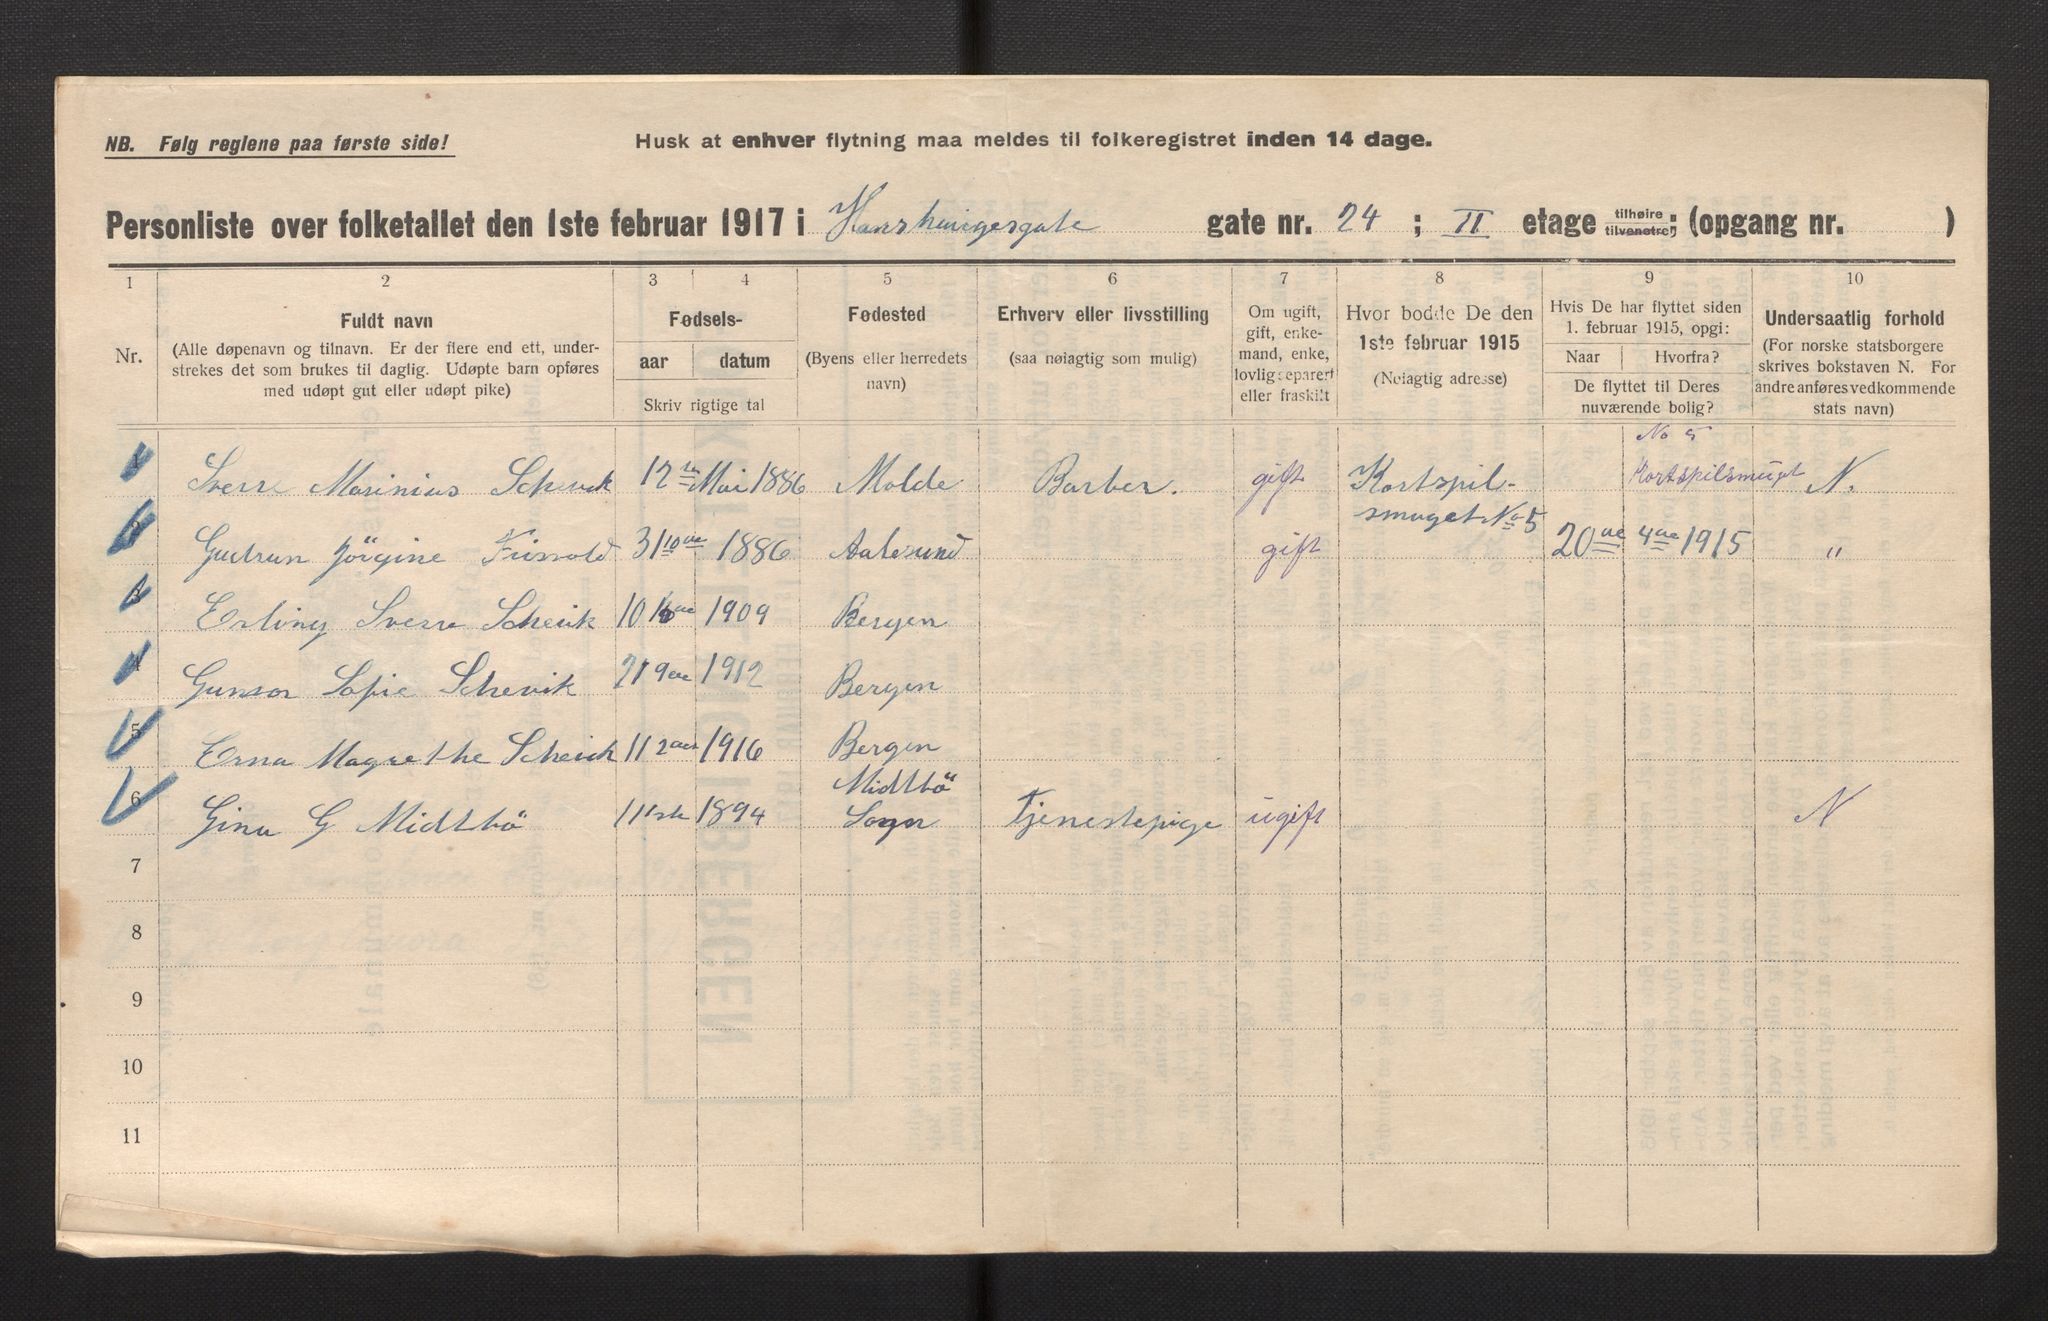 NB. Følg reglene paa første side!
Husk at enhver flytning maa meldes til folkeregistret inden 14 dage.
Personliste over folketallet den 1ste februar 1917 i Hanshaugesgate gate nr. 24 ; II etage tilhøire tilvenstre; (opgang nr. )
1 2 3 4 5 6 7 8 9 10
Nr.
Fuldt navn
(Alle døpenavn og tilnavn. Er der flere end ett, under-
strekes det som brukes til daglig. Udøpte barn opføres
med udøpt gut eller udøpt pike)
Fødsels-
aar datum
Skriv rigtige tal
Fødested
(Byens eller herredets
navn)
Erhverv eller livsstilling
(saa nøiagtig som mulig)
Om ugift,
gift, enke-
mand, enke,
lovlig separert
eller fraskilt
Hvor bodde De den
1ste februar 1915
(Nøiagtig adresse)
Hvis De har flyttet siden
1. februar 1915, opgi:
Naar Hvorfra?
De flyttet til Deres
nuværende bolig?
Undersaatlig forhold
(For norske statsborgere
skrives bokstaven N. For
andre anføres vedkommende
stats navn)
No 5
1 Sverre Marinius Schevik 12te Mai 1886 Molde Barber. gift Kortspil- Kortspilsmuget N.
smuget No 5
2 Gudrun Jörgine 31 10de 1886 Aalesund gift 20de 4de 1915 "
3 Erling Sverre Schevik 10 1909 Bergen
4 Gunvor Sofie Schevik 21 9de 1912 Bergen
5 Erna Magrethe Schevik 11 2den 1916 Bergen
Midtbö
6 Gina G Midtbö 11 1ste 1894 Sogn Tjenestepige ugift N
7
8
9
10
11